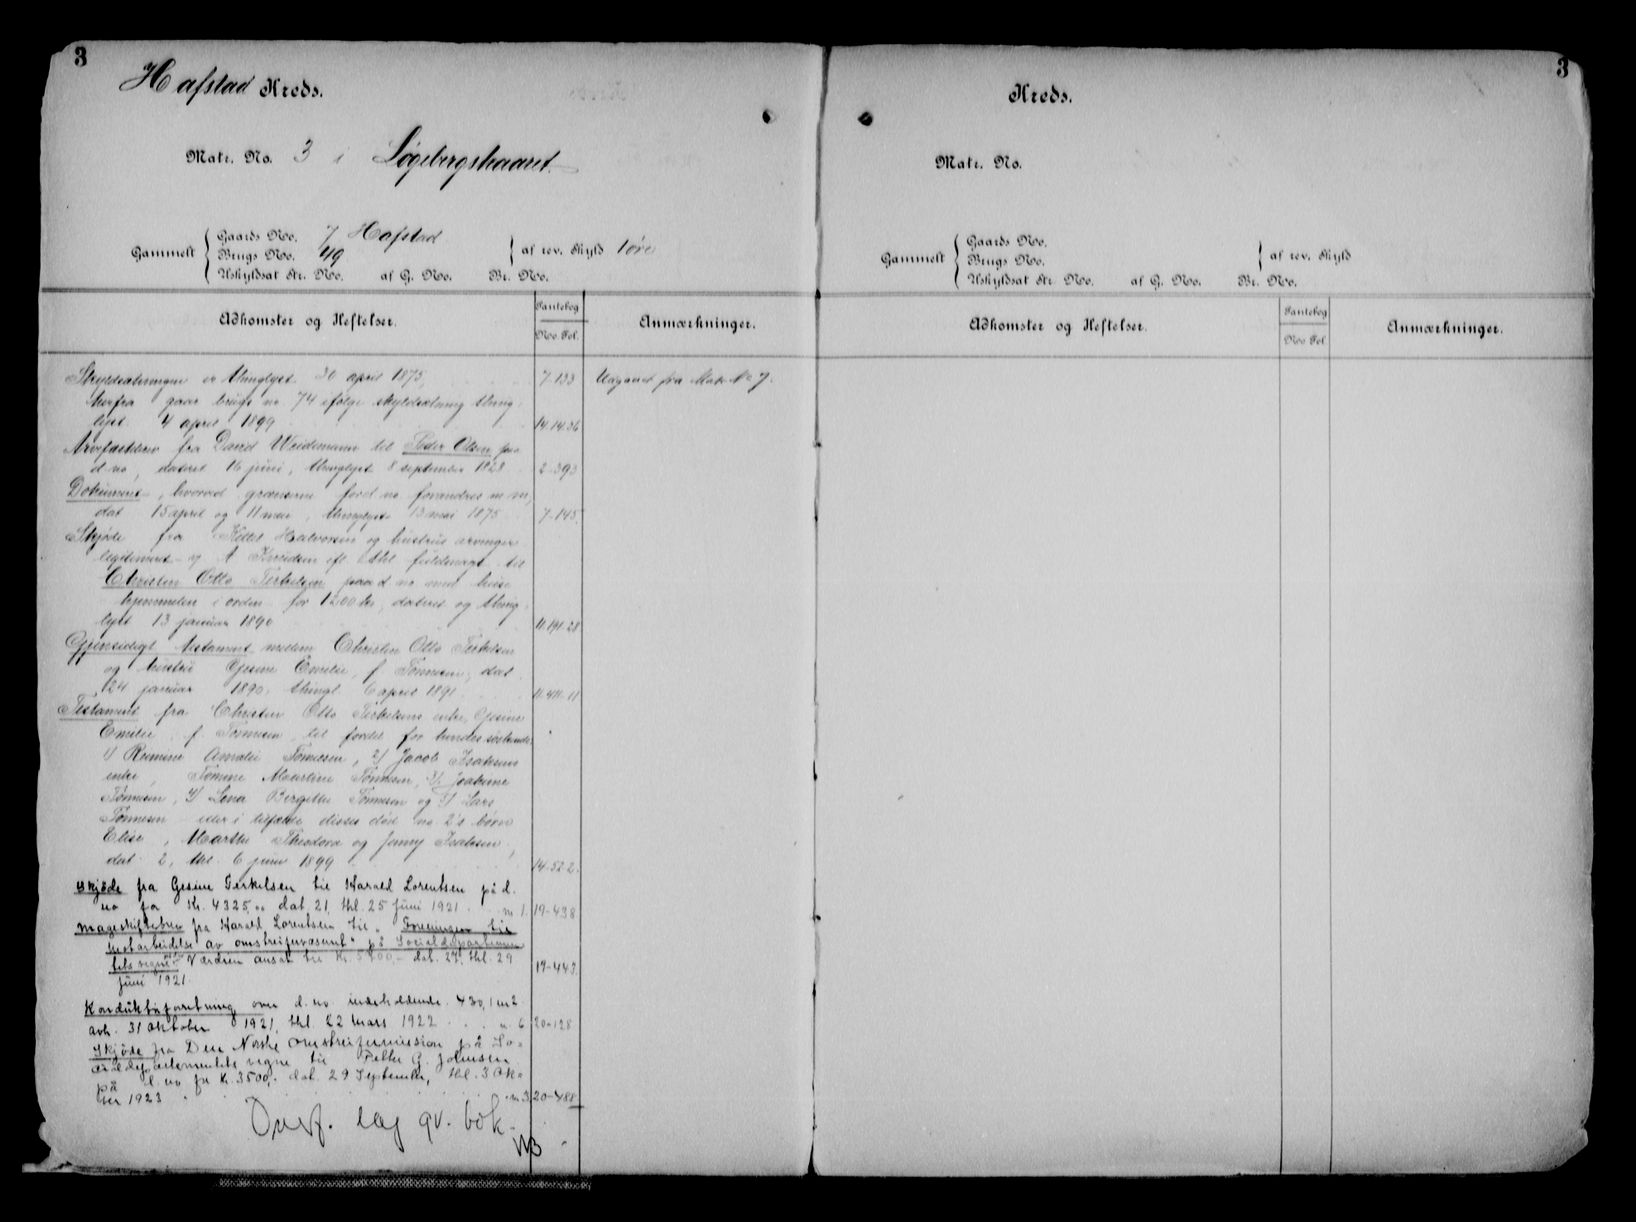 3
Hafstad Kreds.
Matr. No. 3 i Løgebergskaaret.
Gammelt
Gaards No. 7 Hafstad
Brugs No. 49
af rev. Skyld 1 øre
Uskyldsat Str. No. af G. No. Br. No.
Adkomster og Heftelser.
Pantebog
No. Fol.
Anmærkninger.
Skyldsætningen er thinglyst 30 april 1875, 7-133 Udgaaet fra Matr. No 7.
herfra gaar brugs no. 74 ifølge skyldsætning thing-
lyst 4 april 1899 14.14.36
Arvefæstebrev fra David Weidemann til Peder Olsen paa
d. no, dateret 16 juni, thinglyst 8 september 1828 2-393
Dokument, hvorved grændserne for d. no. forandres m. m,
dat. 15 april og 11 mai, thinglyst 13 mai 1875 7-145.
Skjøde fra Kittel Halvorsen og hustrus arvinger
legitimeret A Knudsen efl. thl. fuldmagt til
Christen Otto Terkelsen paa d. no med huse
hjemmelen i orden for 1200 kr, dateret og thing-
lyst 13 januar 1890 11.191.28
Gjensidigt testament mellem Christen Otto Terkelsen
og hustru Gesine Emilie, f. Tønnesen, dat.
24 januar 1890, thingl. 6 april 1891 11.411.11
Testament fra Christen Otto Terkelsens enke, Gesine
Emilie, f. Tønnesen til fordel for hendes søskende:
1) Rumine Amalie Tønnesen, 2) Jacob Isaksens
enke, Tomine Martine Tønnesen, 3) Joakime
Tønnesen, 4) Lena Birgitte Tønnesen og 5) Lars
Tønnesen eller i tilfælde disses død no 2's børn
Elise, Marthe Theodora og Jenny Isaksen,
dat. 2, thl. 6 juni 1899 14-52-2.
Skjöde fra Gesine Terkelsen til Harald Lorentsen på d.
no for Kr. 4325,00 dat. 21, thl. 25 Juni 1921 m 1. 19-438
Mageskiftebrev fra Harald Lorentsen til "Foreningen til
motarbeidelse av omstreifervæsenet" på Socialdepartemen-
tets vegne. Værdien ansat til Kr. dat. 27, thl. 29
Juni 1921. 19-443.
Konduktörforretning over d. no. indeholdende 430,1 m2
avh. 31 Oktober 1921, thl. 22 mars 1922 n. 6 20-128
Skjöde fra Den Norske omstreifermission på So-
cialdepartementets vegne til Petter G. Johnsen
på d. no for Kr. 3500,- dat. 29 September, thl. 3 Ok-
tober 1923 m 3 20-488
Overf. gr. bok.
3
Kreds.
Matr. No.
Gammelt
Gaards No.
Brugs No.
af rev. Skyld
Uskyldsat Str. No. af G. No. Br. No.
Adkomster og Heftelser.
Pantebog
No. Fol.
Anmærkninger.